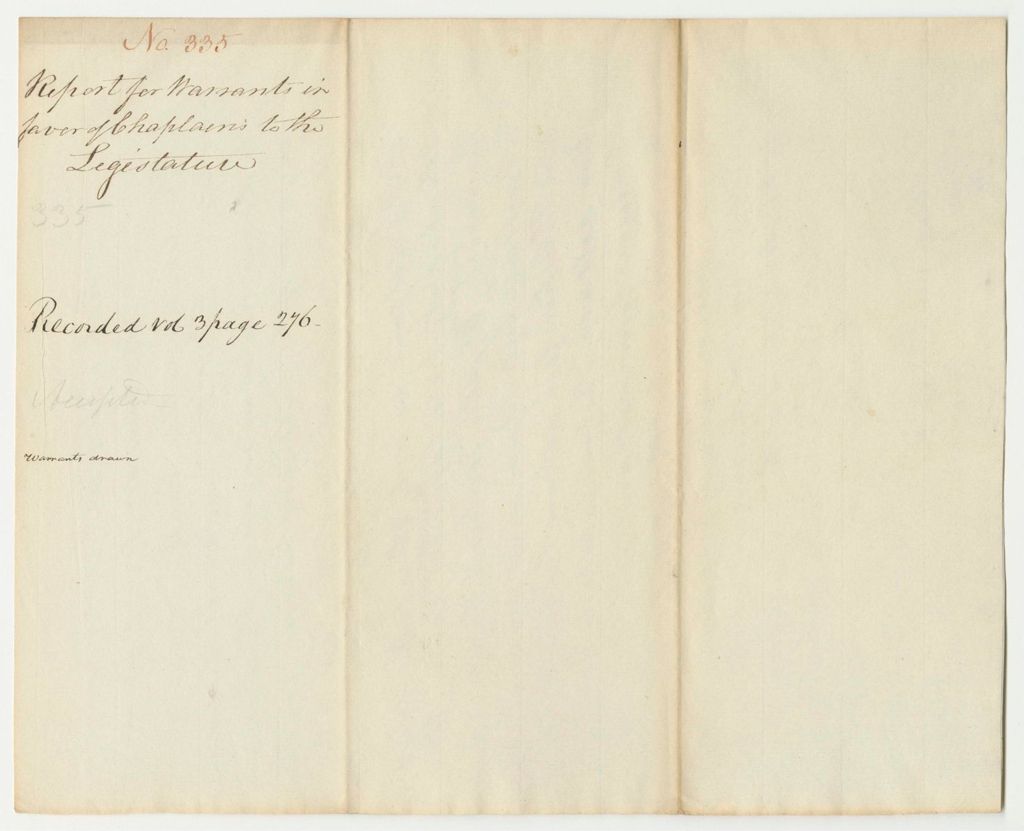 No. 335
Report for Warrants in
favor of Chaplains to the
Legislature
335
Recorded vol 3 page 276-
Accepted
Warrants drawn